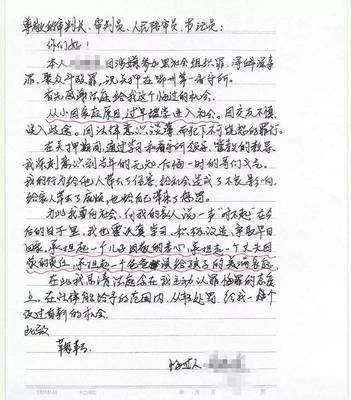 尊敬的审判长、审判员、人民陪审员、书记员:
你们好!
本人 因涉嫌参加黑社会组织罪、寻衅滋事
罪、聚众斗殴罪,现关押在 州第一看守所。
首先感谢法庭给我这个悔过的机会。
从小因家庭原因,过早踏进入社会。因交友不慎
误入歧途。因法律意识淡薄,而犯下不可饶恕的罪行。
在关押期间,通过学习和看守所领导、管教的教导。
我深刻意识到当年的无知,仅凭一时的哥们义气。
我的行为给他人带去了伤害,给社会造成了不良影响,
给家人带去了麻烦,也给自己带来了悔恨。
为此我要向社会、向我的家人说一声"对不起"在今
后的日子里,我也要认真学习,积极改造,争取早日
回家。承担起一个儿子因敬的孝心,承担起一个丈夫因
敬的责任,承担起一个爸爸 给孩子的美满家庭。
在此我恳请法庭念在我主动认罪悔罪的态度
上。在法律能给予的范围内,从轻处罚,给我一个
改过自新的机会。
此致
敬礼
悔过人: